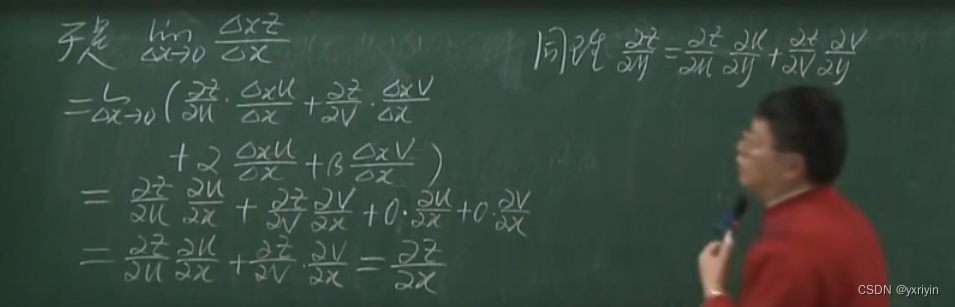 于是 lim_{Δx→0} Δxz/Δx
= L_{Δx→0} (∂z/∂u · Δxu/Δx + ∂z/∂v · Δxv/Δx
+ α Δxu/Δx + β Δxv/Δx)
= ∂z/∂u ∂u/∂x + ∂z/∂v ∂v/∂x + 0·∂u/∂x + 0·∂v/∂x
= ∂z/∂u ∂u/∂x + ∂z/∂v · ∂v/∂x = ∂z/∂x
同理 ∂z/∂y = ∂z/∂u ∂u/∂y + ∂z/∂v ∂v/∂y
CSDN @yxriyin